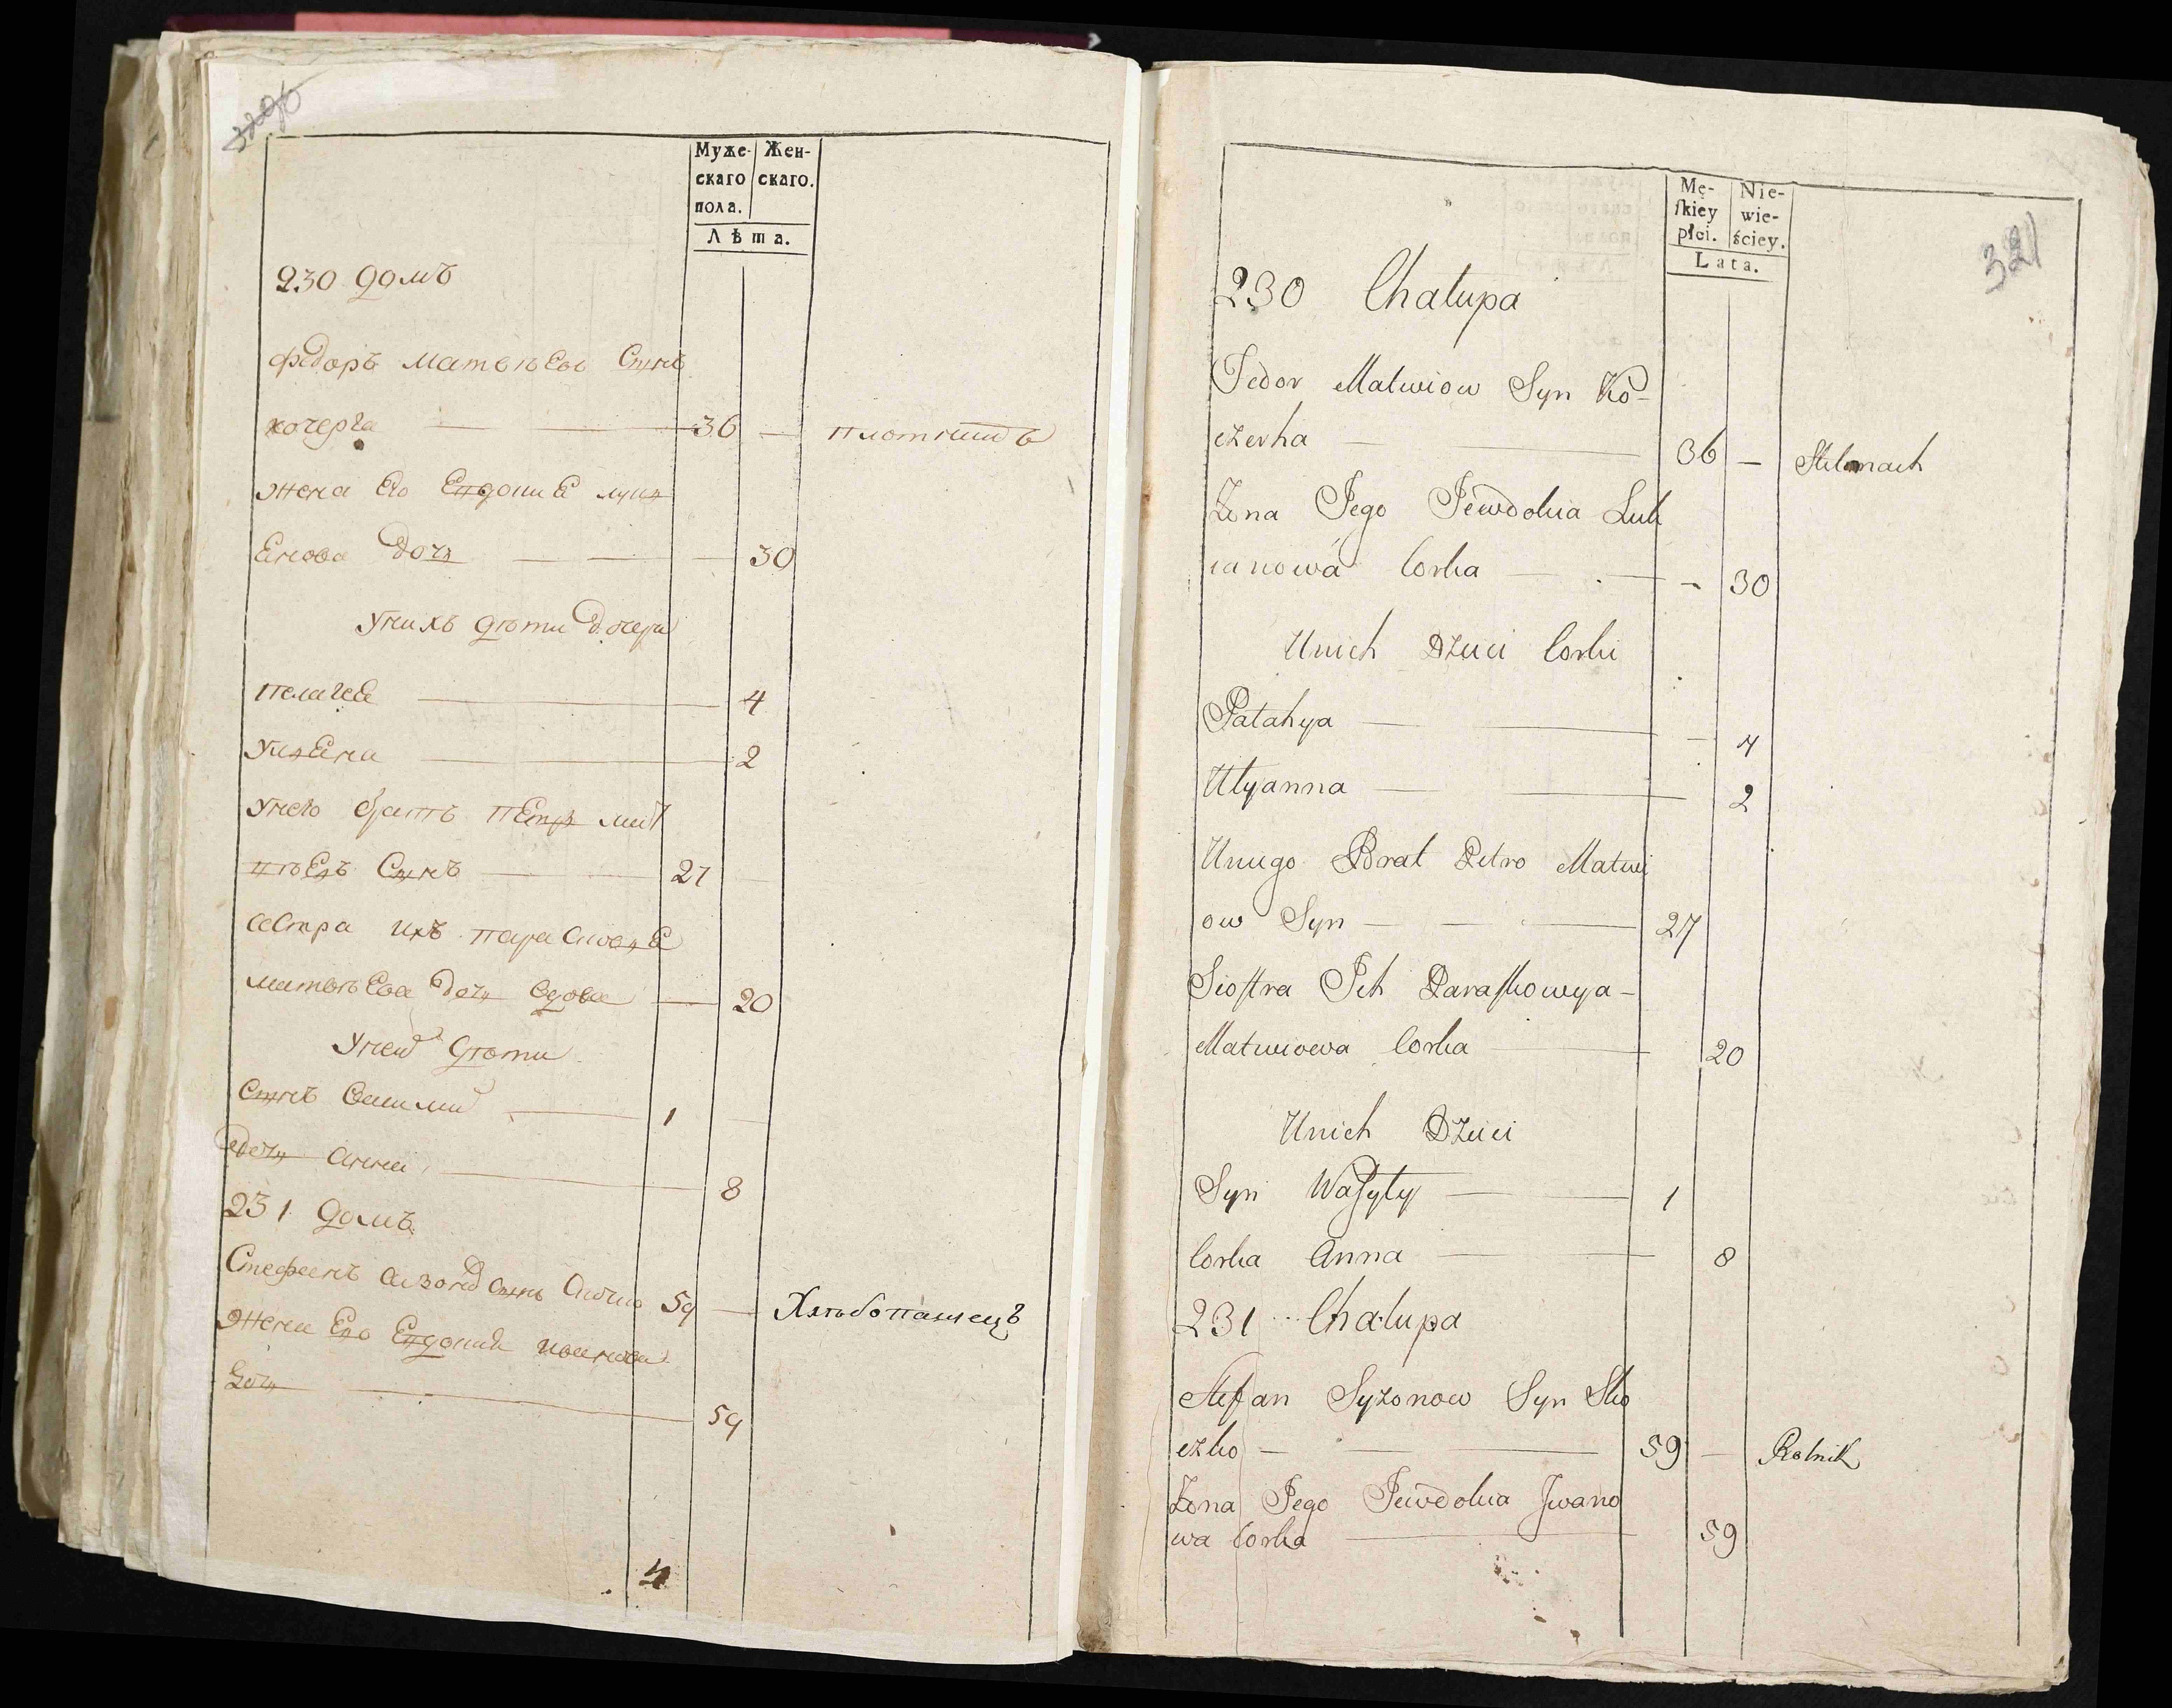 Муже-
скаго
пола.
Жен-
скаго.
Лѣта.
230 домъ
федоръ матвѣевъ Сынъ
кочерга 36 — плотникъ
жена Его Евдокиѣ лукя
Енова дочь 30
Унихъ дѣти дочери
пелагеѣ 4
УлияЕна 2
Унего братъ пЕтръ мат
вѣевъ Сынъ 27
сестра ихъ параскевиѣ
матвѣева дочь вдова 20
Унеи дѣти
Сынъ василий 1
дочь анна 8
231 домъ
Стефанъ Сынъ 59 — Хлѣбопашецъ
жена Его Евдокиѣ иванова
дочь 59
4
321
Mę-
ſkiey
płci.
Nie-
wie-
ściey.
Lata.
230 Chałupa
Fedor Matwiow Syn Ko-
czerha 36 — Stelmach
Żona Jego Jewdokia Luk
ianowa Corka 30
Unich Dzieci Corki
Pałahya 4
Ulyanna 2
Uniego Brat Petro Matwi
ow Syn 27
Sioſtra Ich Paraſkowya-
Matwiowa Corka 20
Unich Dzieci
Syn Waſyly 1
Corka Anna 8
231 Chałupa
Stefan Syzonow Syn Sko
czko 59 — Rolnik
Żona Jego Jewdokia Jwano
wa Corka 59